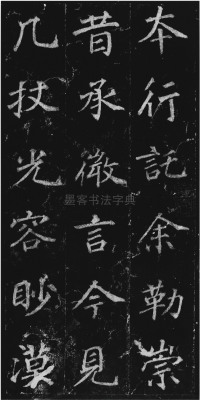 夲行託余勒崇
昔承微言今見
几杖光容眇漠
墨客书法字典